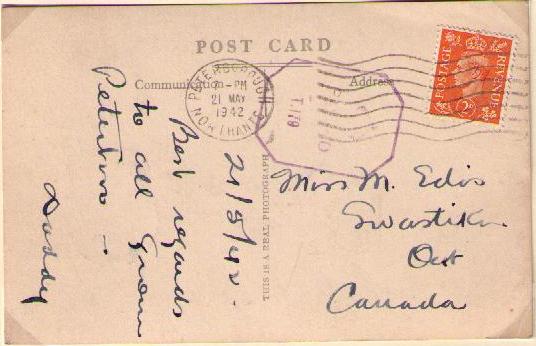 POST CARD
Communication
Address
PETERBOROUGH
2- PM
21 MAY
1942
NORTHANTS
T.179
POSTAGE REVENUE
21/5/42.
Best regards
to all from
Daddy
THIS IS A REAL PHOTOGRAPH
Miss M. Edis
Swastika
Ont
Canada